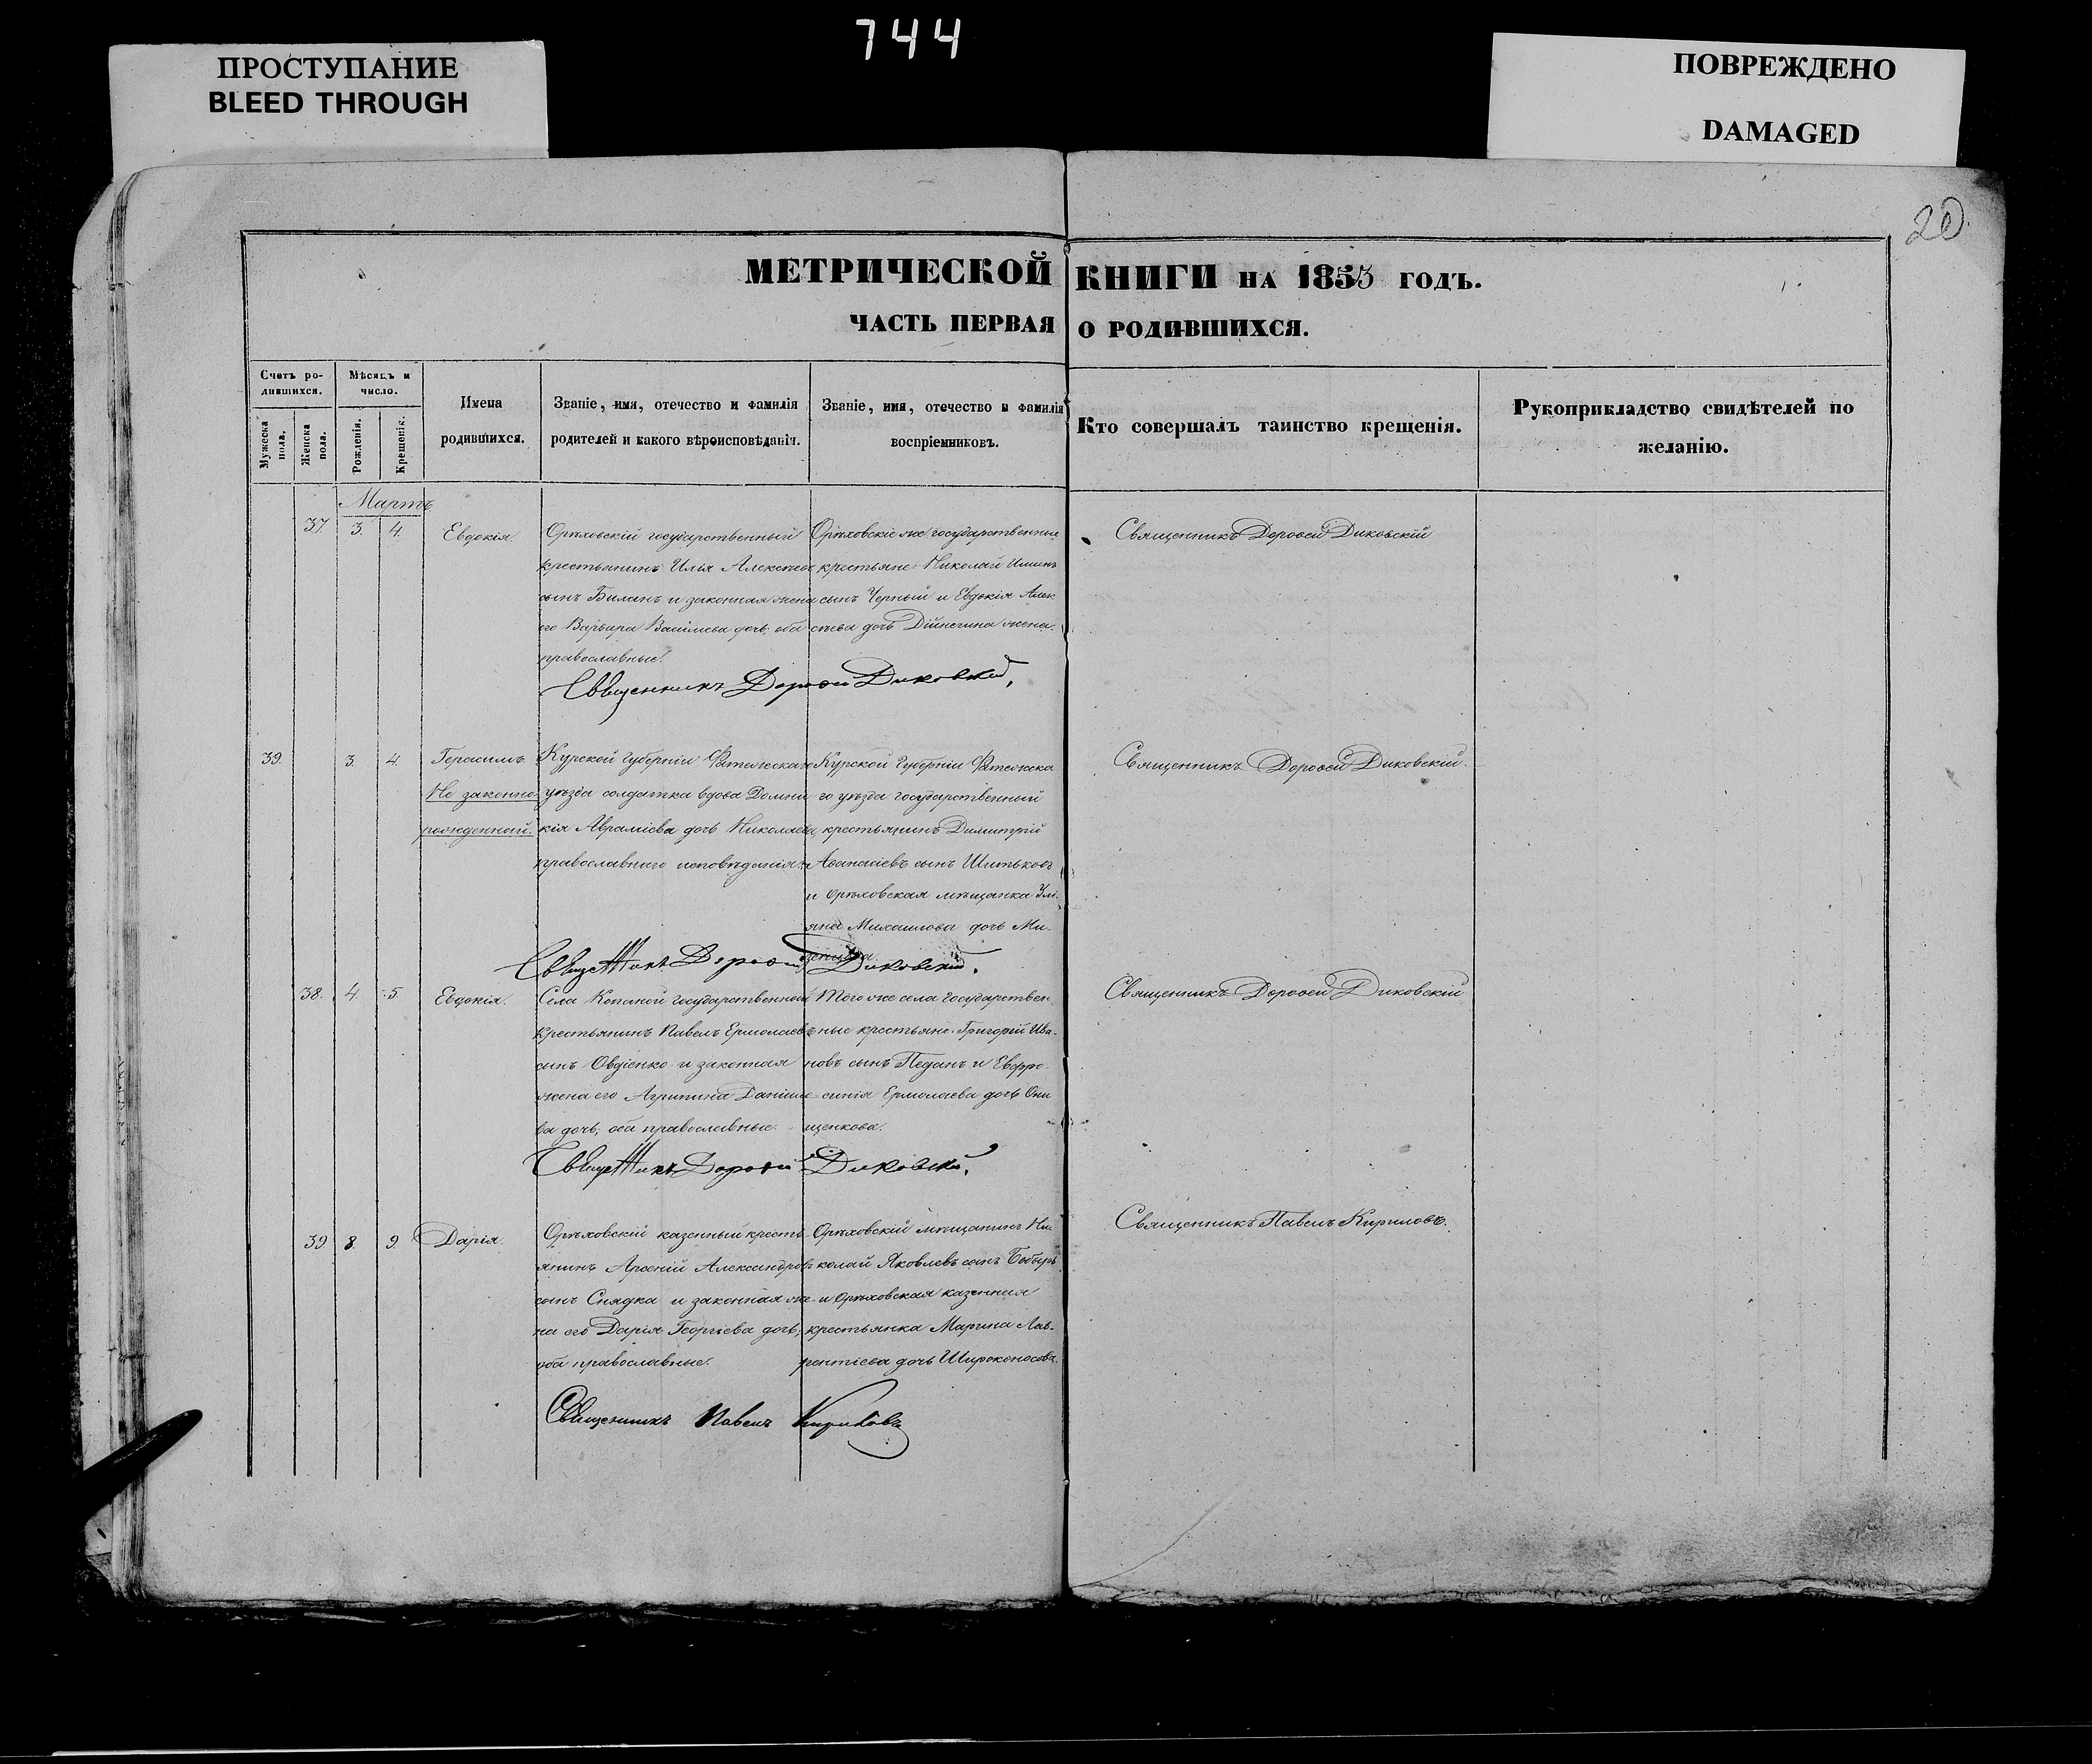 744
ПРОСТУПАНИЕ
BLEED THROUGH
ПОВРЕЖДЕНО
DAMAGED
20
МЕТРИЧЕСКОЙ КНИГИ НА 1855 ГОДЪ.
ЧАСТЬ ПЕРВАЯ О РОДИВШИХСЯ.
Счетъ ро-
дившихся.
Мужеска
пола.
Женска
пола.
Мѣсяцъ и
число.
Рожденія.
Крещенія.
Имена
родившихся.
Званіе, имя, отечество и фамилія
родителей и какого вѣроисповѣданія.
Званіе, имя, отечество и фамилія
воспріемниковъ.
Кто совершалъ таинство крещенія.
Рукоприкладство свидѣтелей по
желанію.
Мартъ
37. 3. 4.
Евдокія
Орѣховскій государственный
крестьянинъ Илья Алексѣевъ
сынъ Биланъ и законная жена
его Варвара Василиева дочь, оба
православные.
Орѣховскіе же государственные
крестьяне: Николай
сынъ Черный и Евдокія Алек
сѣева дочь жена.
Священникъ Дорофей Диковскій
Священникъ Дорофей Диковскій,
39. 3. 4.
Герасимъ.
Не законно-
рожденный.
Курской Губерніи Фатежскаго
уѣзда солдатка вдова Домни
кія Авраміева дочь Николаева,
православнаго исповѣданія.
Курской Губерніи Фатежска
го уѣзда государственный
крестьянинъ Димитрій
Аѳанасіевъ сынъ Шитьковъ
и Орѣховская мѣщанка Улі-
яна Михаилова дочь Ми-
Священникъ Дорофей Диковскій.
Священникъ Дорофей Диковскій.
38. 4. 5.
Евдокія.
Села Копаной государственный
крестьянинъ Павелъ Ермолаевъ
сынъ Овдіенко и законная
жена его Агрипина Даніиле-
ва дочь, оба православные.
Того же села государствен
ные крестьяне. Григорій Ива-
новъ сынъ Педанъ и Евфро
синія Ермолаева дочь Они
щенкова.
Священникъ Дорофей Диковскій
Священникъ Дорофей Диковскій.
39 8. 9.
Дарія.
Орѣховскій казенный кресть-
янинъ Арсеній Александровъ
сынъ Снядка и законная же-
на его Дарія Георгіева дочь,
оба православные.
Орѣховскій мѣщанинъ Ни-
колай Яковлевъ сынъ Бобырь
и Орѣховская казенная
крестьянка Марина Лав-
рентіева дочь Широконосова.
Священникъ Павелъ Кириловъ.
Священникъ Павелъ Кириловъ